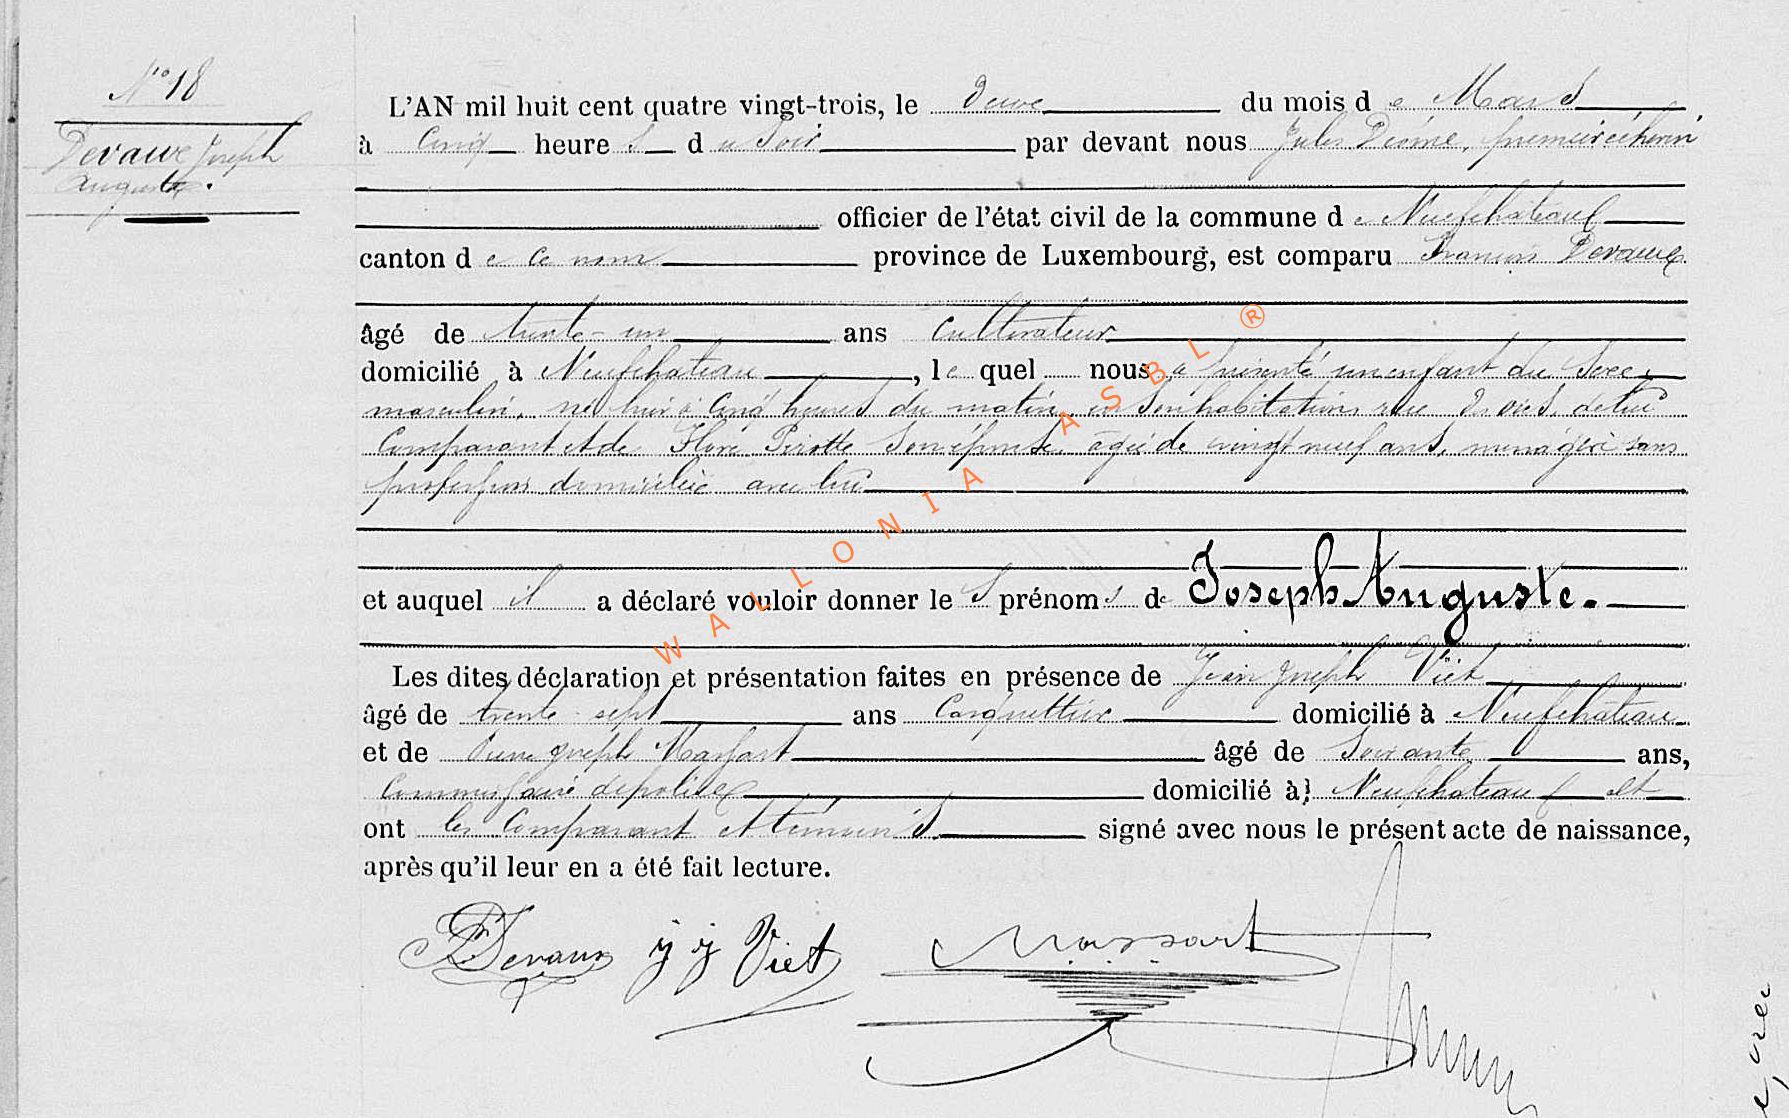 N° 18
Devaux Joseph
Auguste.
L'AN mil huit cent quatre vingt-trois, le deux du mois de Mars
à cinq heures du soir par devant nous Jules premier échevin
officier de l'état civil de la commune de Neufchateau
canton de ce nom province de Luxembourg, est comparu François Devaux
âgé de trente-un ans cultivateur
domicilié à Neufchateau, lequel nous a présenté un enfant du sexe
masculin, né hier à cinq heures du matin en son habitation rue de lui
comparant et de Flore Pirotte son épouse, âgée de vingt neuf ans, ménagère sans
profession domiciliée avec lui
et auquel il a déclaré vouloir donner les prénoms de Joseph Auguste.
Les dites déclaration et présentation faites en présence de Jean Joseph Viet
âgé de trente-sept ans casquettier domicilié à Neufchateau
et de Pierre Joseph Massart âgé de soixante ans,
commissaire de police domicilié à Neufchateau et
ont les comparant et témoins signé avec nous le présent acte de naissance,
après qu'il leur en a été fait lecture.
F Devaux j j Viet Massart
WALLONIA ASBL ®